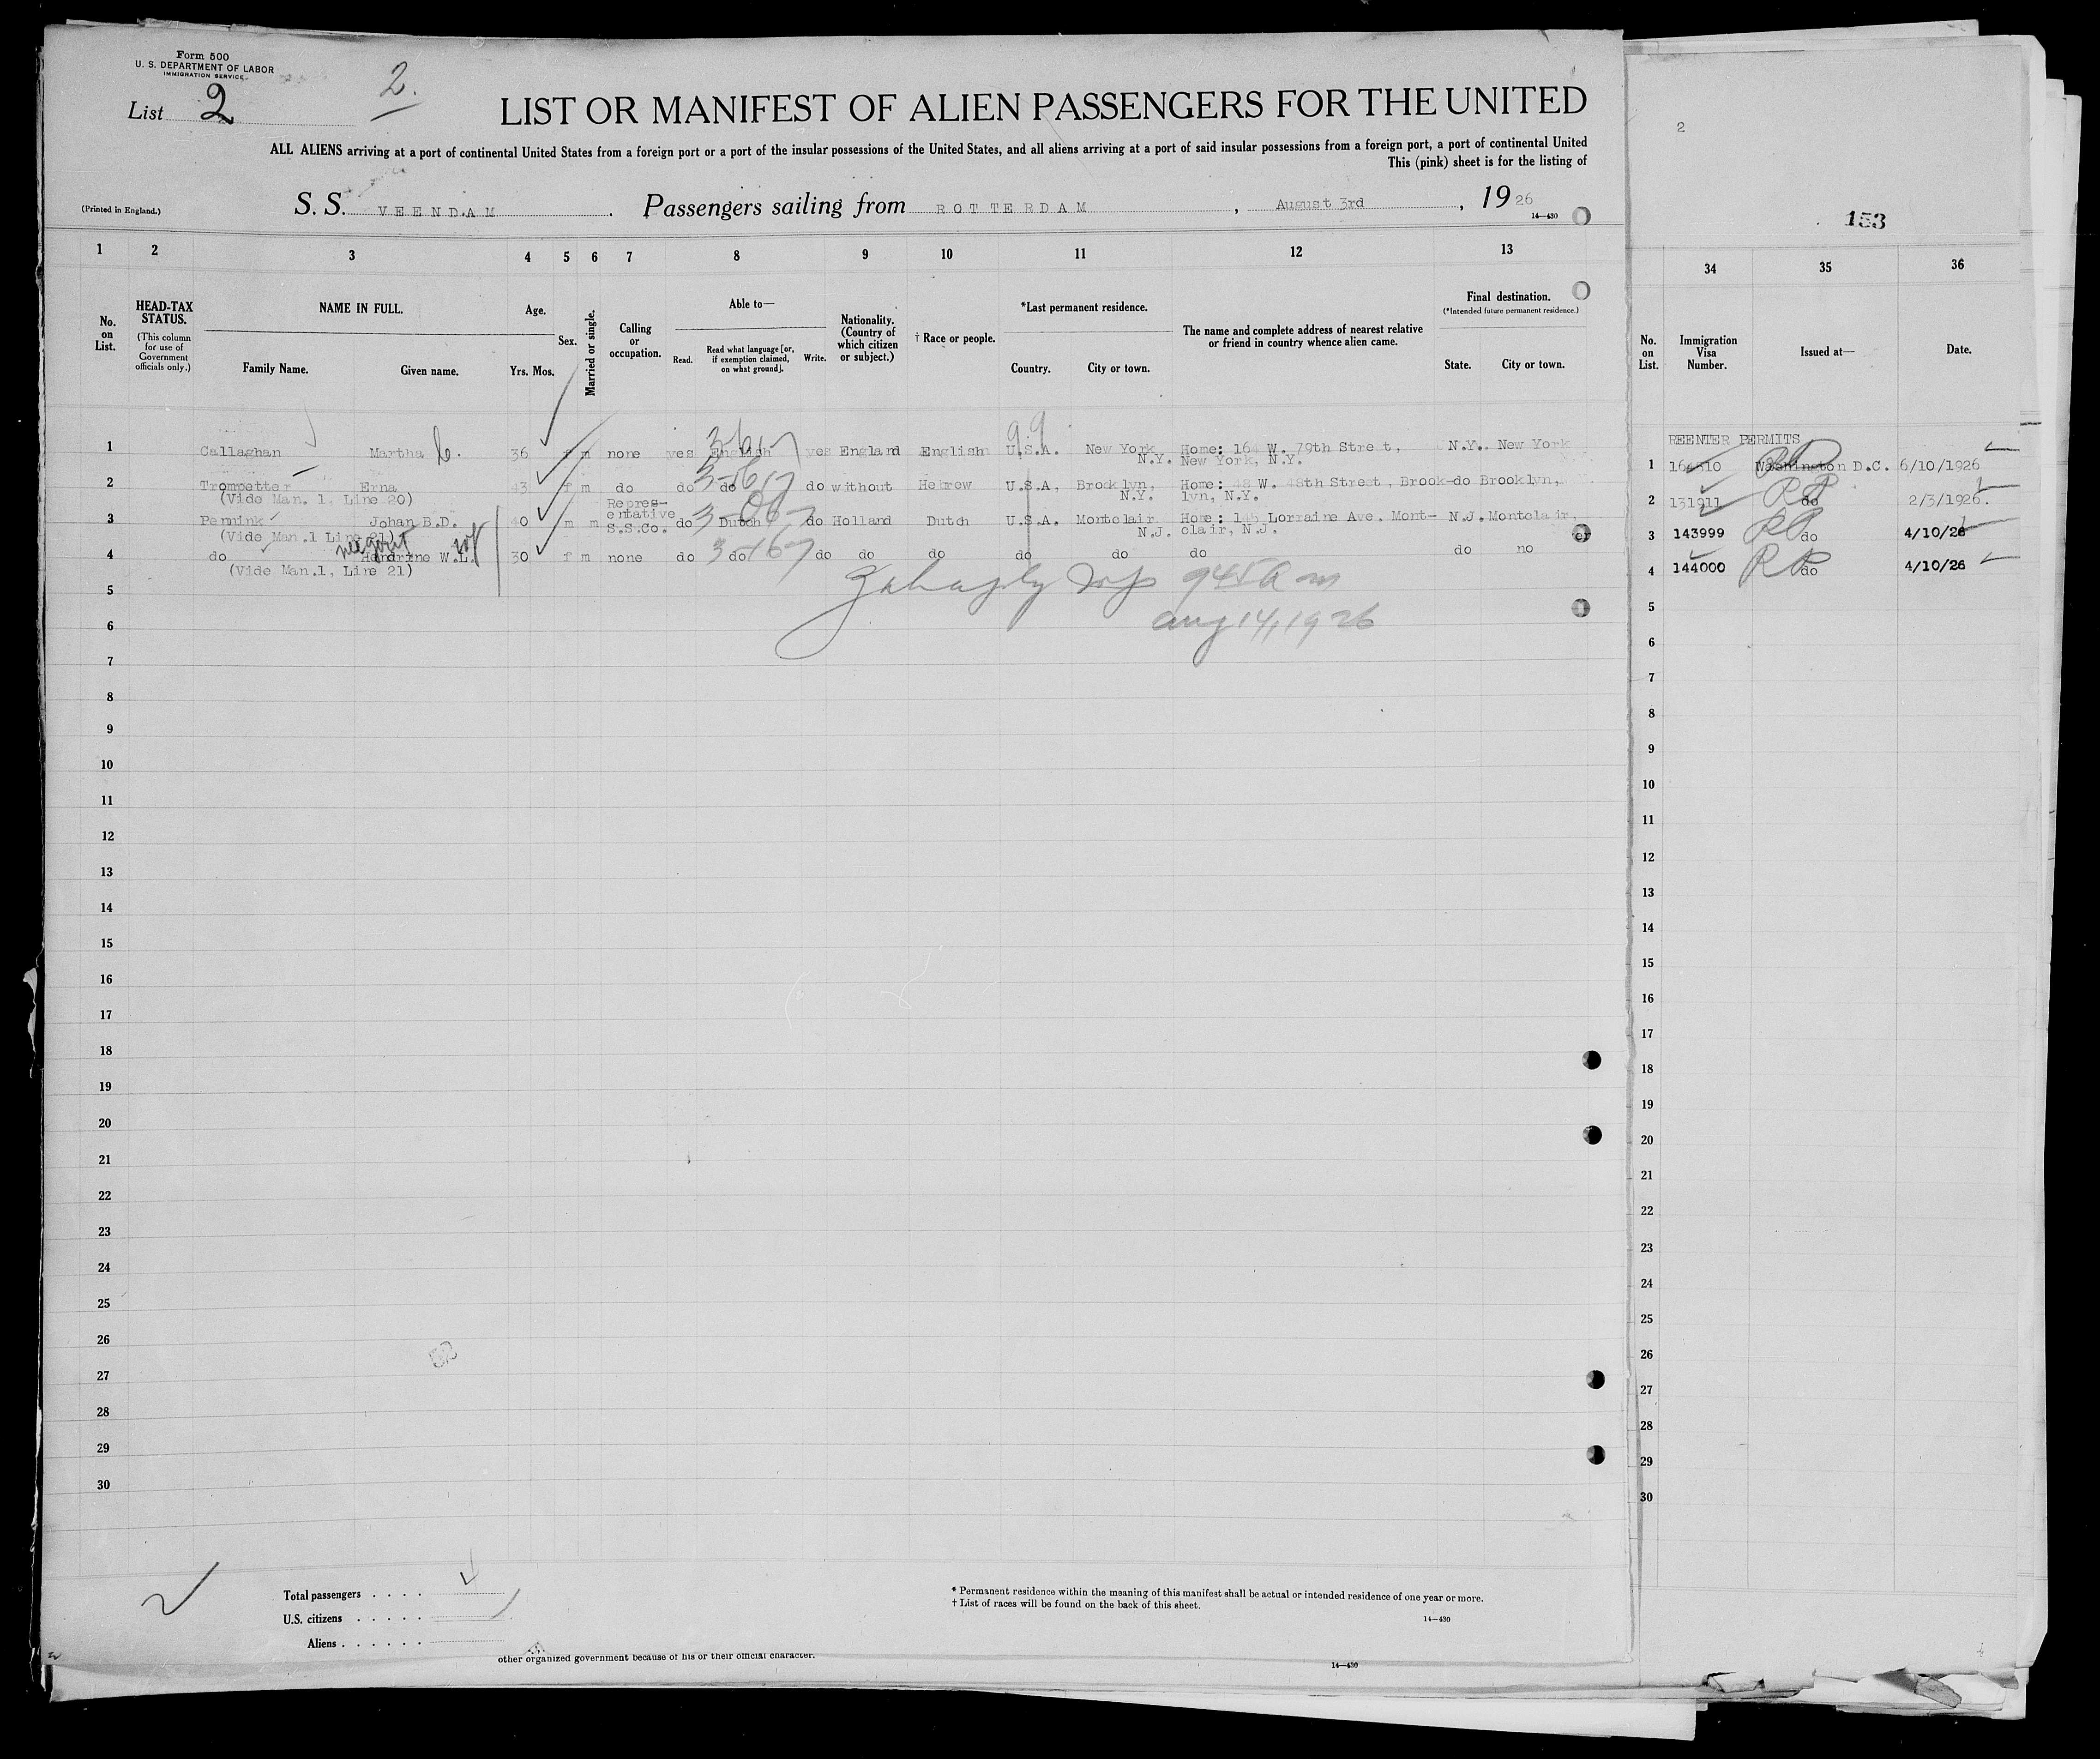 Form 500
U. S. DEPARTMENT OF LABOR
IMMIGRATION SERVICE
List 2
2.
LIST OR MANIFEST OF ALIEN PASSENGERS FOR THE UNITED
ALL ALIENS arriving at a port of continental United States from a foreign port or a port of the insular possessions of the United States, and all aliens arriving at a port of said insular possessions from a foreign port, a port of continental United
This (pink) sheet is for the listing of
(Printed in England.)
S. S. VEENDAM . Passengers sailing from ROTTERDAM , August 3rd , 1926
14—430
1 2 3 4 5 6 7 8 9 10 11 12 13
No. on List.
HEAD-TAX STATUS.
(This column for use of Government officials only.)
NAME IN FULL.
Family Name. Given name.
Age.
Yrs. Mos.
Sex.
Married or single.
Calling or occupation.
Able to—
Read. Read what language [or, if exemption claimed, on what ground]. Write.
Nationality. (Country of which citizen or subject.)
† Race or people.
*Last permanent residence.
Country. City or town.
The name and complete address of nearest relative or friend in country whence alien came.
Final destination.
(*Intended future permanent residence.)
State. City or town.
1 Callaghan Martha C. 36 f m none yes English yes England English U.S.A. New York N.Y. Home: 164 W. 79th Street, New York, N.Y. N.Y. New York
2 Trompetter Erna 43 f m do do do do without Hebrew U.S.A. Brooklyn, N.Y. Home: 48 W. 48th Street, Brook-lyn, N.Y. do Brooklyn,
(Vide Man. 1, Line 20)
3 Pennink Johan B.D. 40 m m Repres-entative S.S.Co. do Dutch do Holland Dutch U.S.A. Montclair N.J. Home: 145 Lorraine Ave. Mont-clair, N.J. N.J. Montclair,
(Vide Man.1 Line 21)
4 do Hendrine W.L. 30 f m none do do do do do do do do do no
(Vide Man.1, Line 21)
945 a m
aug 14, 1926
5
6
7
8
9
10
11
12
13
14
15
16
17
18
19
20
21
22
23
24
25
26
27
28
29
30
52
Total passengers . . . .
U.S. citizens . . . . .
Aliens . . . . . .
* Permanent residence within the meaning of this manifest shall be actual or intended residence of one year or more.
† List of races will be found on the back of this sheet.
14—430
other organized government because of his or their official character.
14—430
2
153
34 35 36
No. on List.
Immigration Visa Number.
Issued at—
Date.
REENTER PERMITS
1 Washington D.C. 6/10/1926
2 131911 do 2/3/1926.
3 143999 do 4/10/26
4 144000 do 4/10/26
5
6
7
8
9
10
11
12
13
14
15
16
17
18
19
20
21
22
23
24
25
26
27
28
29
30